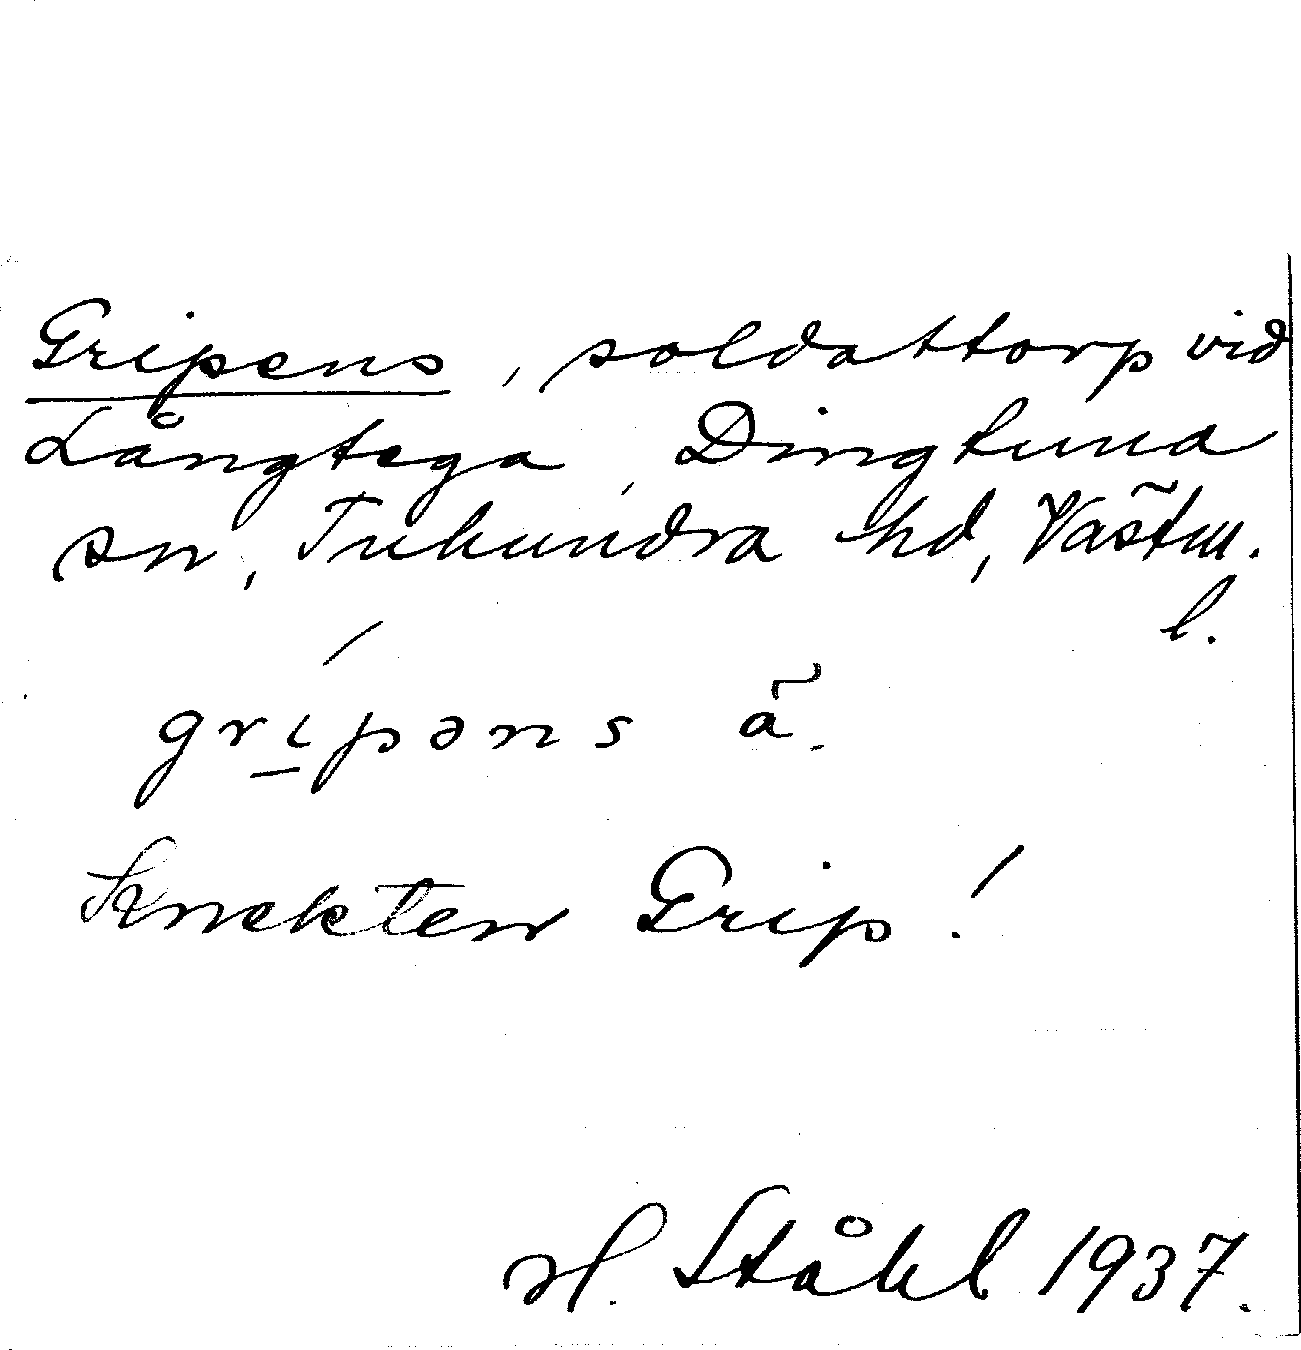 Gripens, soldattorp vid
Långtega, Dingtuna
sn, Tuhundra hd, Västm.
l.
gripəns ã.
Knekten Grip!
H. Ståhl 1937.